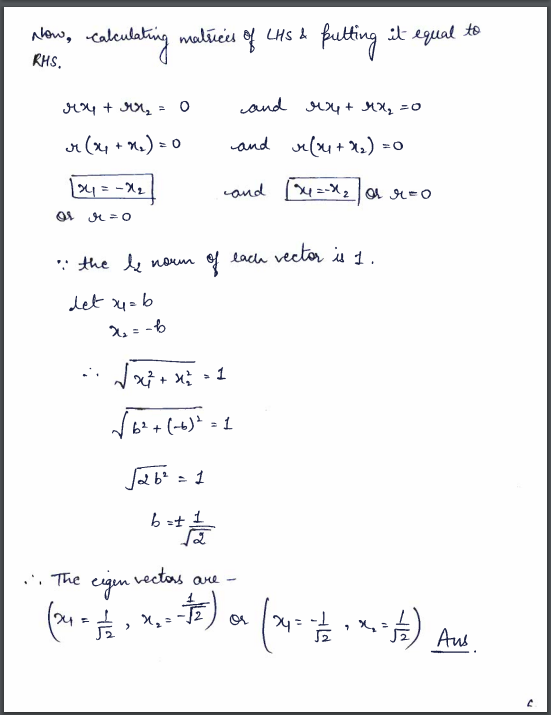 Now, calculating matrices of LHS & putting it equal to
RHS.
rx₁ + rx₂ = 0 and rx₁ + rx₂ = 0
r(x₁ + x₂) = 0 and r(x₁ + x₂) = 0
x₁ = -x₂ and x₁ = -x₂ or r = 0
or r = 0
∵ the l₂ norm of each vector is 1.
Let x₁ = b
x₂ = -b
∴ √(x₁² + x₂²) = 1
√(b² + (-b)²) = 1
√(2b²) = 1
b = ± 1/√2
∴ The eigen vectors are -
(x₁ = 1/√2, x₂ = -1/√2) or (x₁ = -1/√2, x₂ = 1/√2) Ans.